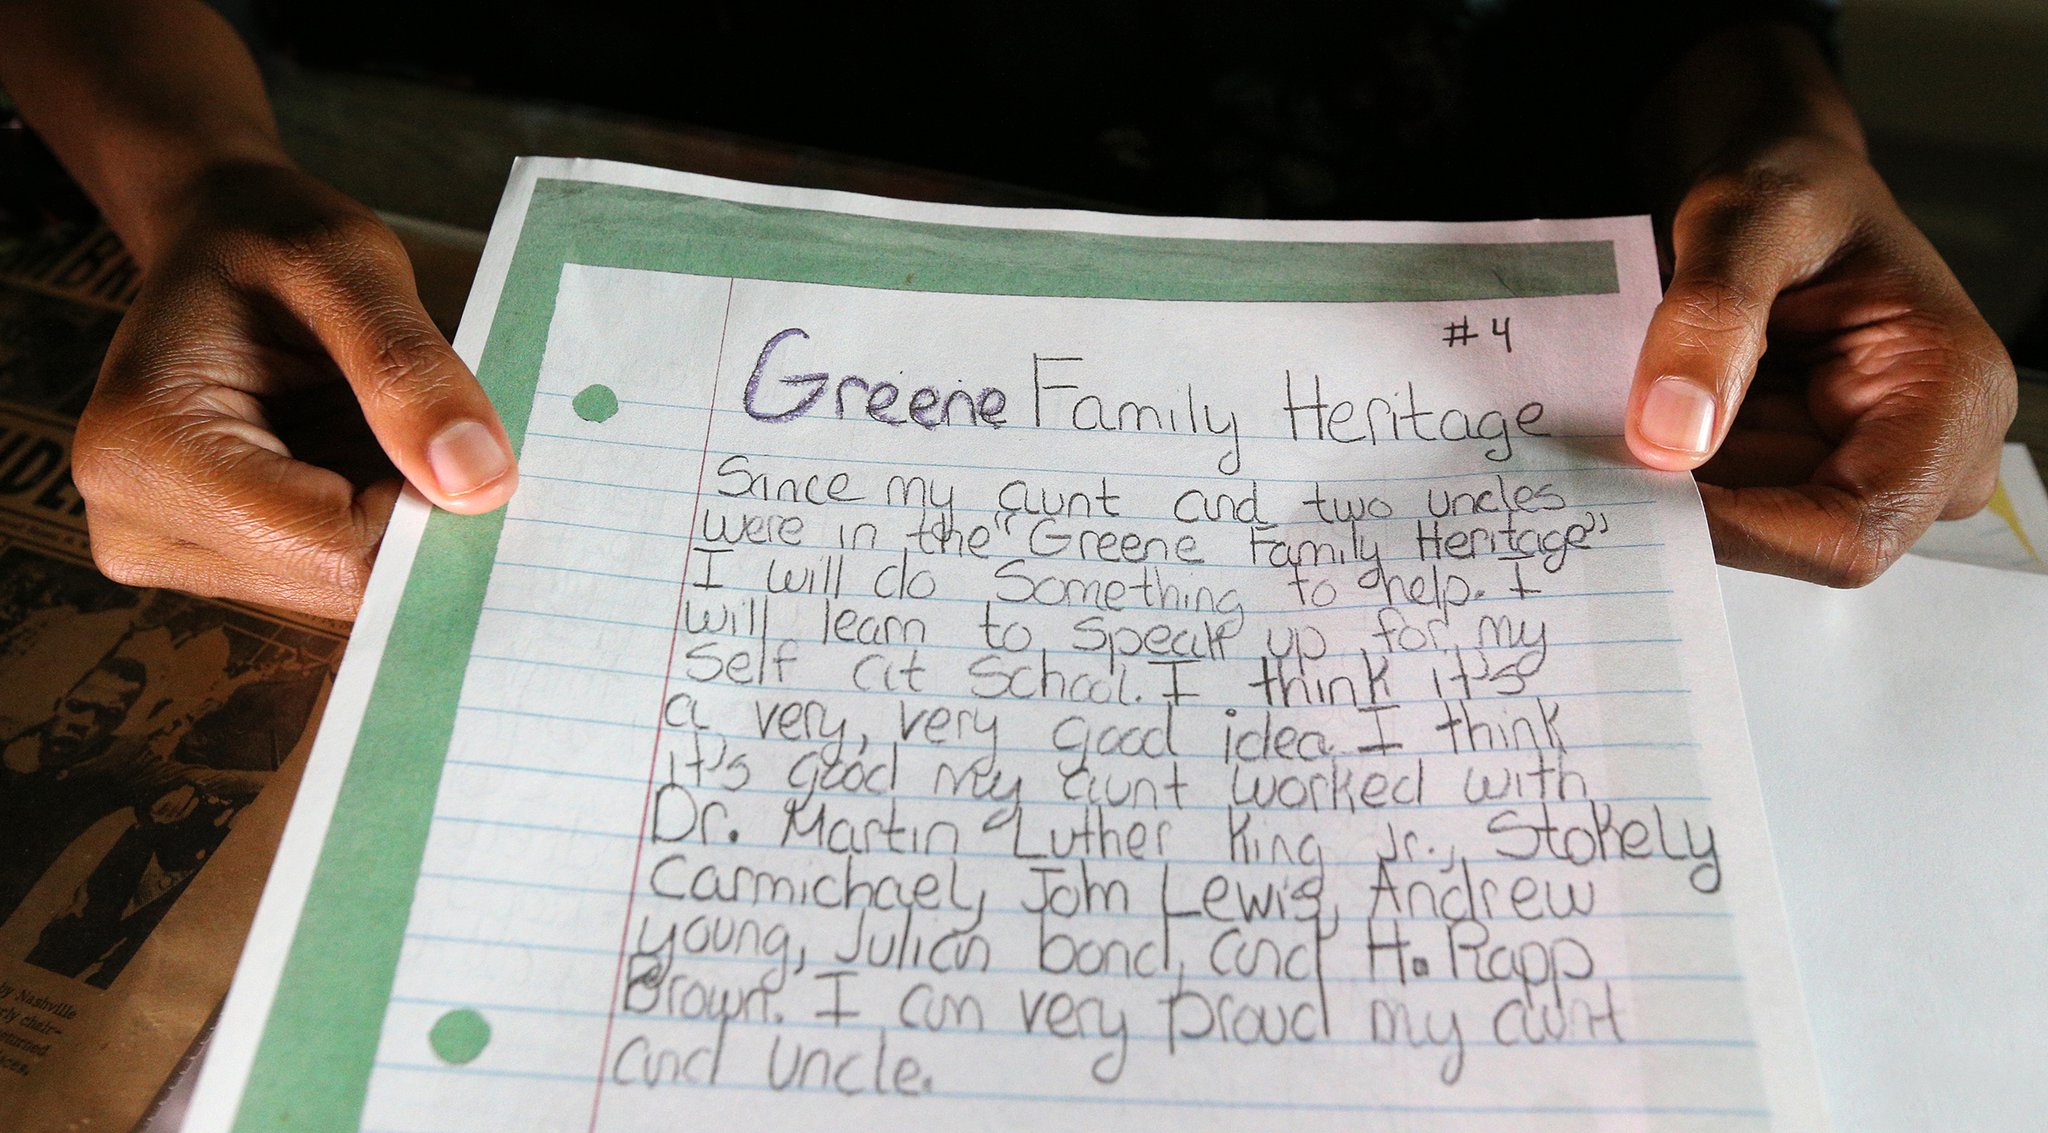 #4
Greene Family Heritage
Since my aunt and two uncles
were in the "Greene Family Heritage"
I will do something to help. I
will learn to speak up for my
self at school. I think it's
a very, very good idea. I think
it's good my aunt worked with
Dr. Martin Luther King Jr., Stokely
Carmichael, John Lewis, Andrew
young, Julian bond, and H. Rapp
Brown. I am very proud my aunt
and uncle.
by Nashville